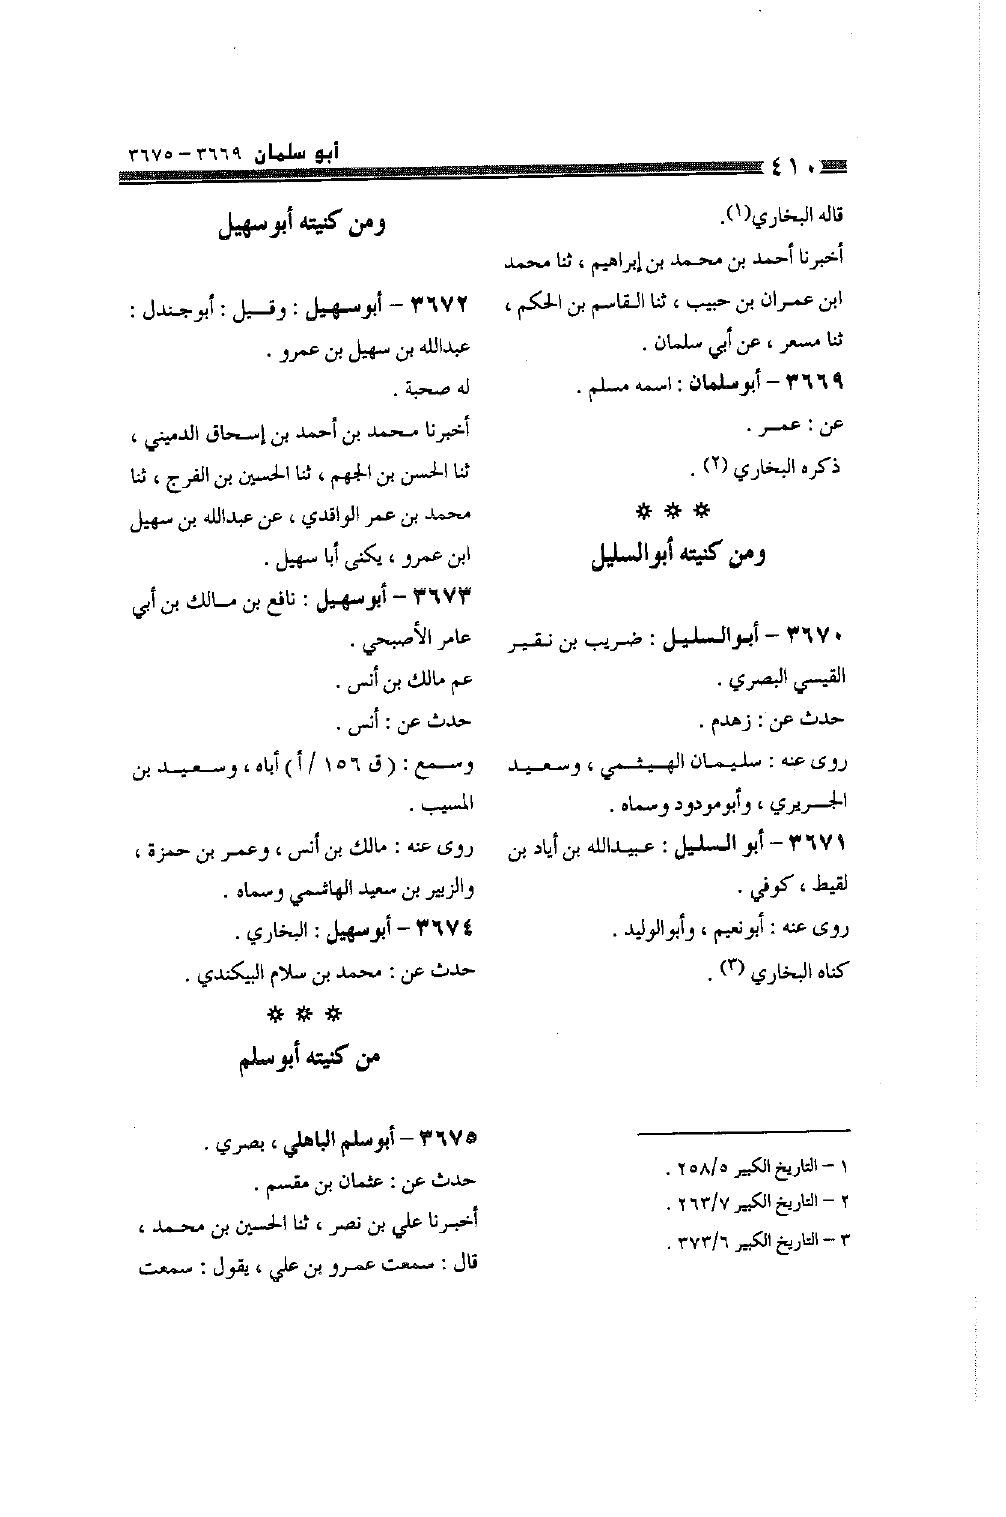 ٤١٠
أبو سلمان ٣٦٦٩ – ٣٦٧٥
قاله البخاري(١).
أخبرنا أحمد بن محمد بن إبراهيم ، ثنا محمد
ابن عمران بن حبيب ، ثنا القاسم بن الحكم ،
ثنا مسعر ، عن أبي سلمان .
٣٦٦٩ – أبو سلمان : اسمه مسلم .
عن : عمر .
ذكره البخاري (٢) .
* * *
ومن كنيته أبو السليل
٣٦٧٠ – أبو السليل : ضريب بن نقير
القيسي البصري .
حدث عن : زهدم .
روى عنه : سليمان الهيثمي ، وسعيد
الجريري ، وأبو مودود وسماه .
٣٦٧١ – أبو السليل : عبيدالله بن أياد بن
لقيط ، كوفي .
روى عنه : أبو نعيم ، وأبو الوليد .
كناه البخاري (٣) .
١ – التاريخ الكبير ٢٥٨/٥ .
٢ – التاريخ الكبير ٢٦٣/٧ .
٣ – التاريخ الكبير ٣٧٣/٦ .
ومن كنيته أبو سهيل
٣٦٧٢ – أبو سهيل : وقيل : أبو جندل :
عبدالله بن سهيل بن عمرو .
له صحبة .
أخبرنا محمد بن أحمد بن إسحاق الدميني ،
ثنا الحسن بن الجهم ، ثنا الحسين بن الفرج ، ثنا
محمد بن عمر الواقدي ، عن عبدالله بن سهيل
ابن عمرو ، يكنى أبا سهيل .
٣٦٧٣ – أبو سهيل : نافع بن مالك بن أبي
عامر الأصبحي .
عم مالك بن أنس .
حدث عن : أنس .
وسمع : ( ق ١٥٦ / أ ) أباه ، وسعيد بن
المسيب .
روى عنه : مالك بن أنس ، وعمر بن حمزة ،
والزبير بن سعيد الهاشمي وسماه .
٣٦٧٤ – أبو سهيل : البخاري .
حدث عن : محمد بن سلام البيكندي .
* * *
من كنيته أبو سلم
٣٦٧٥ – أبو سلم الباهلي ، بصري .
حدث عن : عثمان بن مقسم .
أخبرنا علي بن نصر ، ثنا الحسين بن محمد ،
قال : سمعت عمرو بن علي ، يقول : سمعت